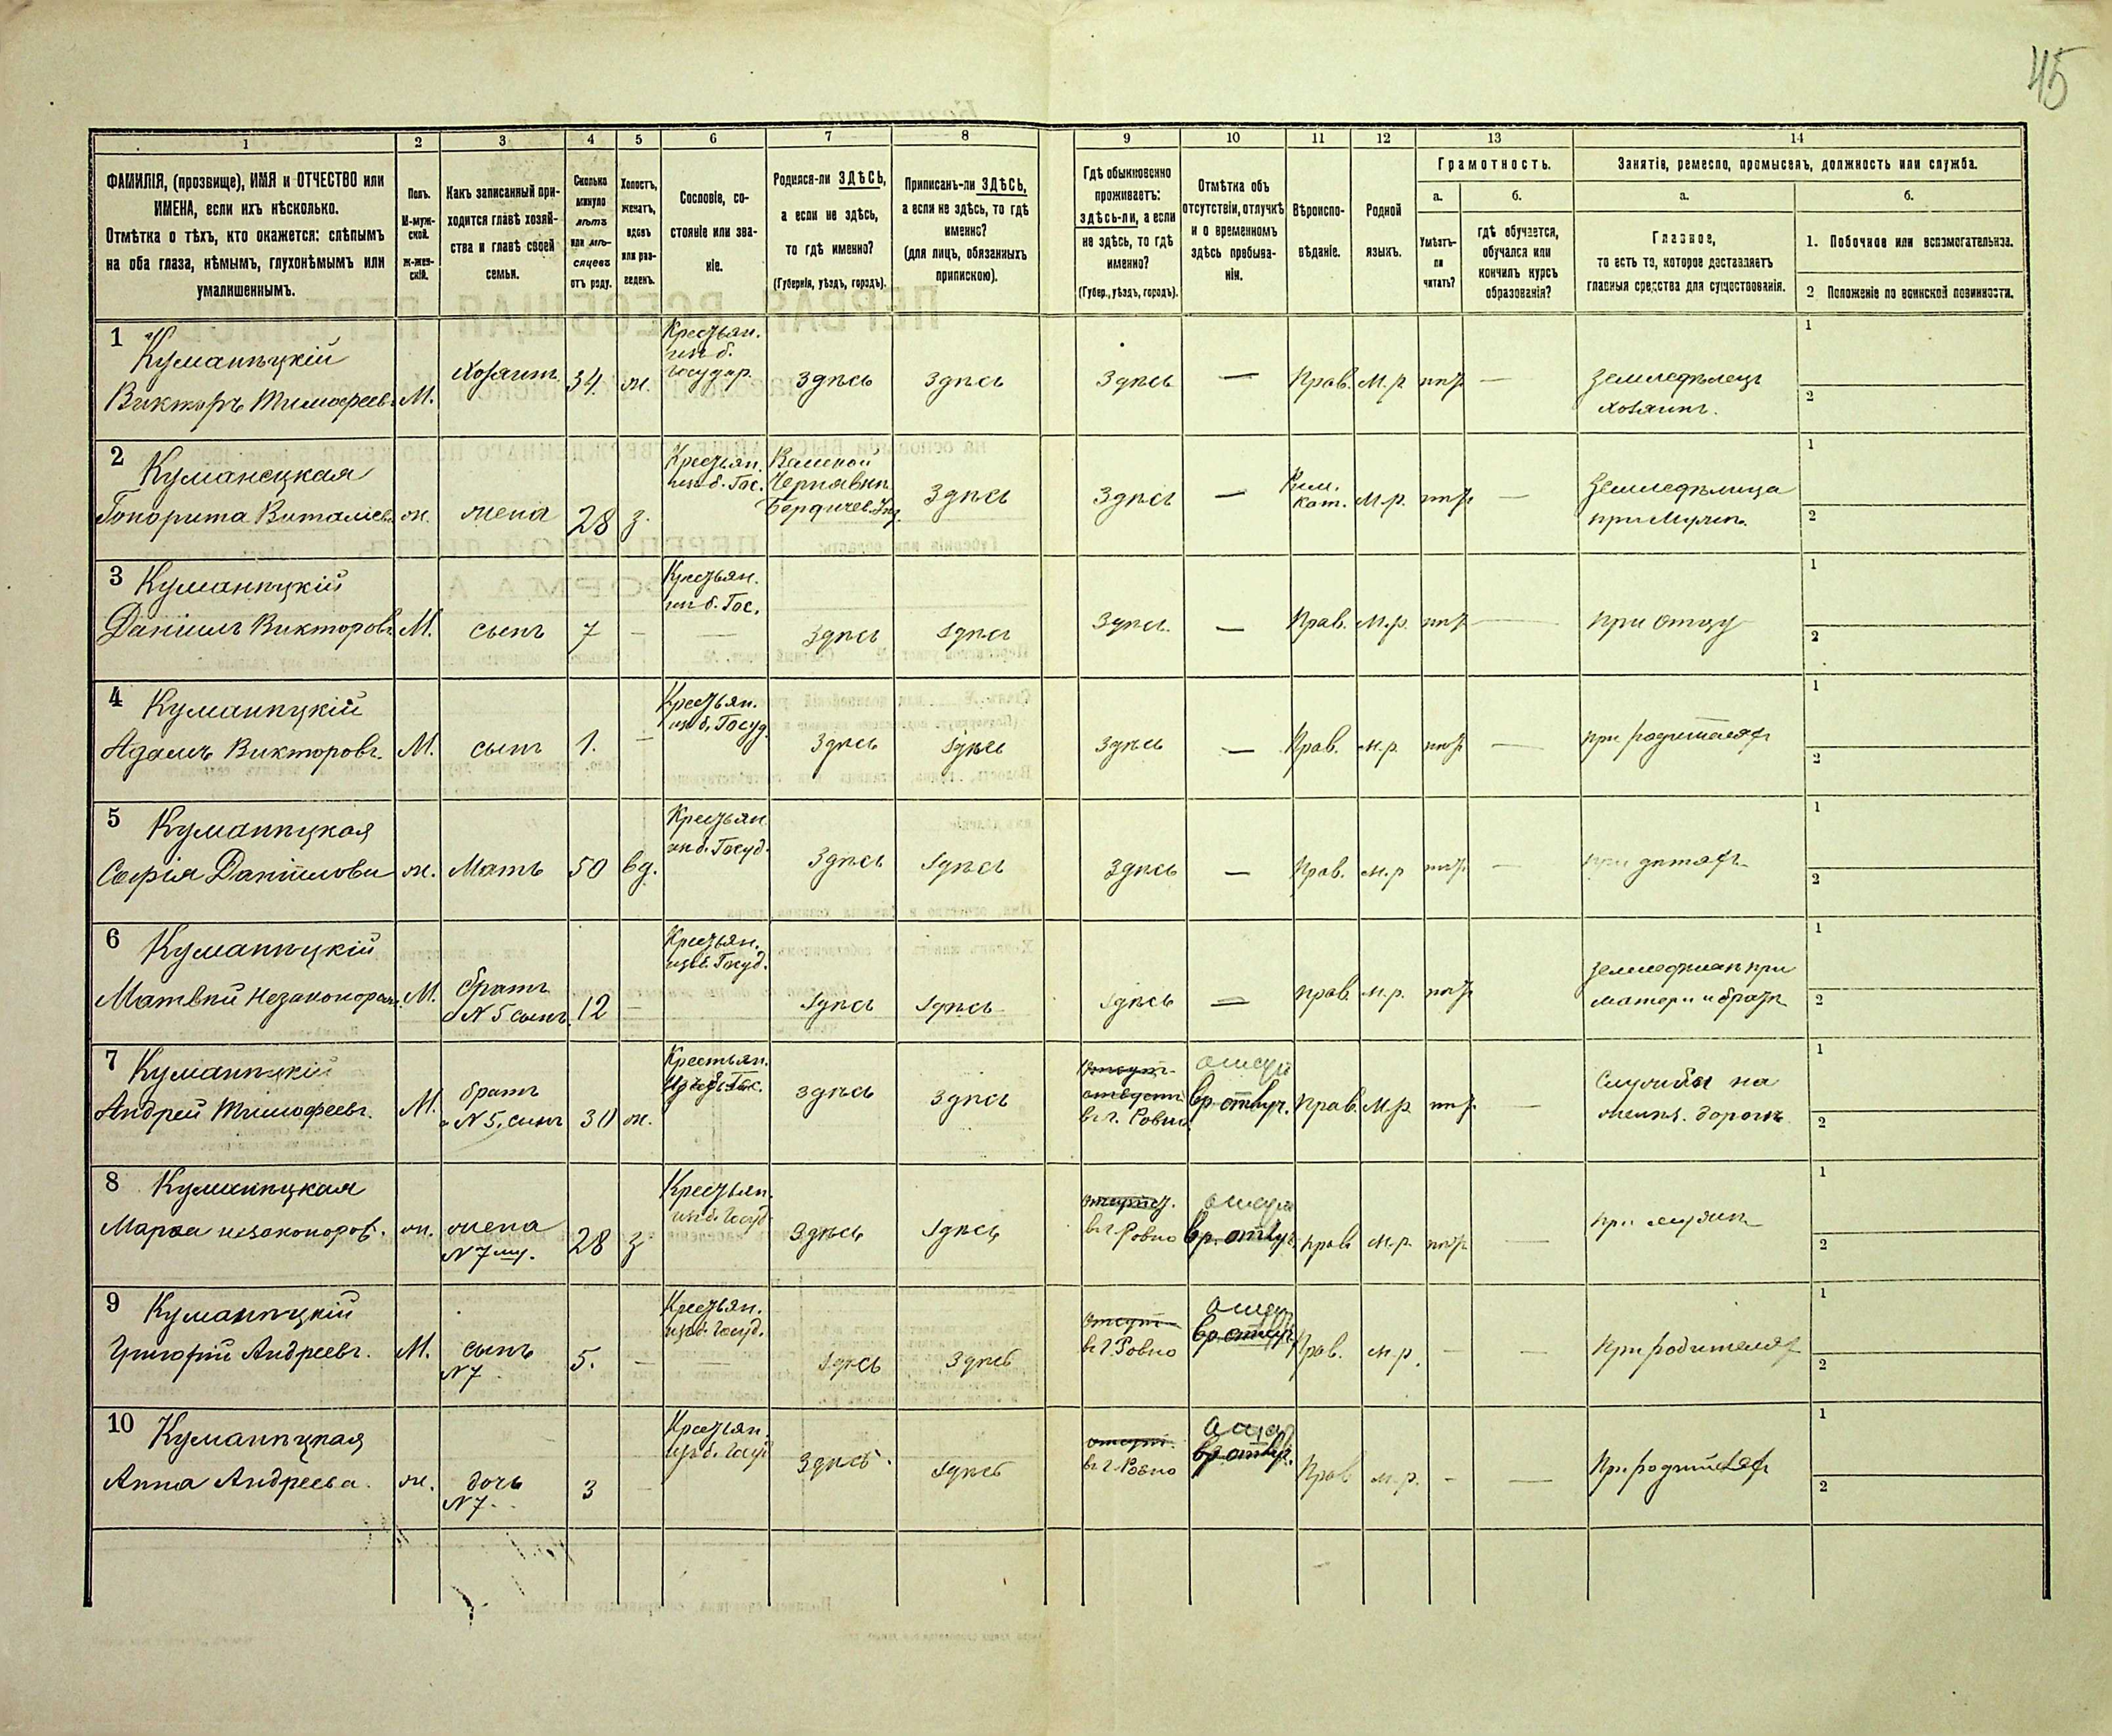 45
1
2
3
4
5
6
7
8
9
10
11
12
13
14
ФАМИЛІЯ, (прозвище), ИМЯ и ОТЧЕСТВО или
ИМЕНА, если ихъ нѣсколько.
Отмѣтка о тѣхъ, кто окажется: слѣпымъ
на оба глаза, нѣмымъ, глухонѣмымъ или
умалишеннымъ.
Полъ.
М-муж-
ской.
Ж-жен-
скій.
Какъ записанный при-
ходится главѣ хозяй-
ства и главѣ своей
семьи.
Сколько
минуло
лѣтъ
или мѣ-
сяцевъ
отъ роду.
Холостъ,
женатъ,
вдовъ
или раз-
веденъ.
Сословіе, со-
стояніе или зва-
ніе.
Родился-ли ЗДѢСЬ,
а если не здѣсь,
то гдѣ именно?
(Губернія, уѣздъ, городъ).
Приписанъ-ли ЗДѢСЬ,
а если не здѣсь, то гдѣ
именно?
(для лицъ, обязанныхъ
припискою).
Гдѣ обыкновенно
проживаетъ:
здѣсь-ли, а если
не здѣсь, то гдѣ
именно?
(Губер., уѣздъ, городъ).
Отмѣтка объ
отсутствіи, отлучкѣ
и о временномъ
здѣсь пребыва-
ніи.
Вѣроиспо-
вѣданіе.
Родной
языкъ.
Грамотность.
а.
б.
Умѣетъ-
ли
читать?
гдѣ обучается,
обучался или
кончилъ курсъ
образованія?
Занятіе, ремесло, промыселъ, должность или служба.
а.
б.
Главное,
то есть то, которое доставляетъ
главныя средства для существованія.
1. Побочное или вспомогательное.
2 Положеніе по воинской повинности.
1
Куманѣцкій
Викторъ Тимофеев.
М.
Хозяинъ
34
ж.
Крестьян.
изъ б.
Государ.
Здѣсь
Здѣсь
Здѣсь
—
Прав.
М.р.
нѣтъ
—
Земледѣлецъ
Хозяинъ.
1
2
2
Куманецкая
Гонорита Виталіев.
ж.
жена
28
з.
Крестьян.
изъ б. Гос.
Бердичев. Уѣз.
Здѣсь
Здѣсь
—
Рим.
Кат.
М.р.
нѣтъ
—
Земледѣлица
при Мужѣ.
1
2
3
Куманѣцкій
Даніилъ Викторов.
М.
сынъ
7
—
Крестьян.
изъ б. Гос.
Здѣсь
Здѣсь
Здѣсь
—
Прав.
М.р.
нѣтъ
—
при отцу
1
2
4
Куманѣцкій
Адамъ Викторовъ.
М.
сынъ
1.
—
Крестьян.
изъ б. Госуд.
Здѣсь
Здѣсь
Здѣсь
—
Прав.
м.р.
нѣтъ
—
при родителях
1
2
5
Куманѣцкая
Софія Даниилови
ж.
Мать
50
вд.
Крестьян.
изъ б. Госуд.
Здѣсь
Здѣсь
Здѣсь
—
Прав.
м.р
нѣтъ
—
при дѣтяхъ
1
2
6
Куманѣцкій
Матвѣй Незаконорож.
М.
братъ
а N 5 сынъ.
12
—
Крестьян.
изъ б. Госуд.
Здѣсь
Здѣсь
Здѣсь
—
прав.
м.р.
нѣтъ
матери и братѣ
1
2
7
Куманѣцкій
Андрей Тимофеевъ.
М.
братъ
а N 5. сынъ
30
ж.
Крестьян.
Изъ б. Гос.
здѣсь
здѣсь
в г. Ровно
вр. отлуч.
Прав.
М.р.
нѣтъ
—
Службы на
желѣз. дорогѣ
1
2
8
Куманѣцкая
Марѳа незаконорож.
ж.
жена
N 7му.
28
з
Крестьян.
изъ б. Госуд
Здѣсь
Здѣсь
в г. Ровно
вр. отлуч.
прав
м.р.
нѣтъ
—
при мужѣ
1
2
9
Куманѣцкій
Григорій Андреевъ.
М.
сынъ
N 7
5.
—
Крестьян.
изъ б. Госуд.
Здѣсь
Здѣсь
в г. Ровно
вр. отлуч.
Прав.
м.р.
—
—
При родителях
1
2
10
Куманѣцкая
Анна Андреева.
ж.
дочь
N 7.
3
—
Крестьян.
изъ б. Госуд
Здѣсь.
Здѣсь
в г. Ровно
вр. отлуч.
Прав
м.р.
-
—
При родителях
1
2